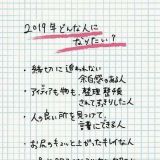 2019年どんな人に
なりたい?
・締切に追われない
余白感のある人
・アイディアも物も、整理整頓
されてすっきりした人
・人の良い所を見つけて、
言葉にできる人
・お尻のキュッと上がったキレイな人